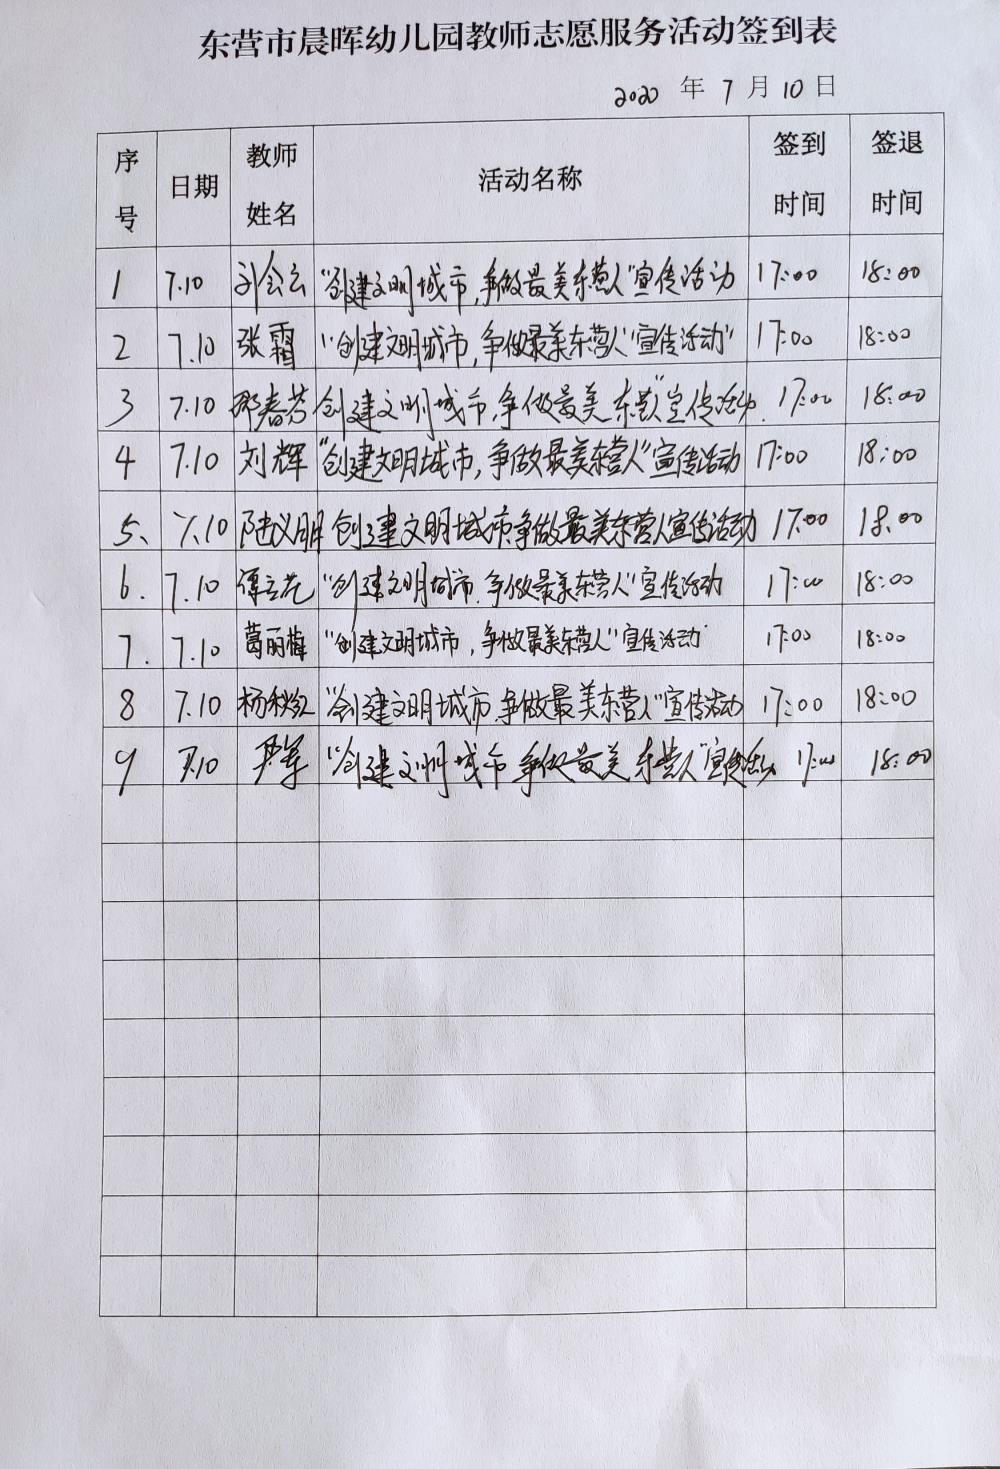 东营市晨晖幼儿园教师志愿服务活动签到表
2020 年 7 月 10 日
序号 日期 教师姓名 活动名称 签到时间 签退时间
1 7.10 刘会云 "创建文明城市,争做最美东营人"宣传活动 17:00 18:00
2 7.10 张霜 "创建文明城市,争做最美东营人"宣传活动" 17:00 18:00
3 7.10 邵春芬 创建文明城市,争做最美东营人"宣传活动. 17:00 18:00
4 7.10 刘辉 "创建文明城市,争做最美东营人"宣传活动 17:00 18:00
5、 7.10 陆义明 创建文明城市争做最美东营人宣传活动 17:00 18:00
6. 7.10 "创建文明城市,争做最美东营人"宣传活动 17:00 18:00
7. 7.10 葛丽梅 "创建文明城市,争做最美东营人"宣传活动 17:00 18:00
8 7.10 杨秋红 "创建文明城市,争做最美东营人"宣传活动 17:00 18:00
9 7.10 "创建文明城市 争做最美东营人"宣传活动 17:00 18:00